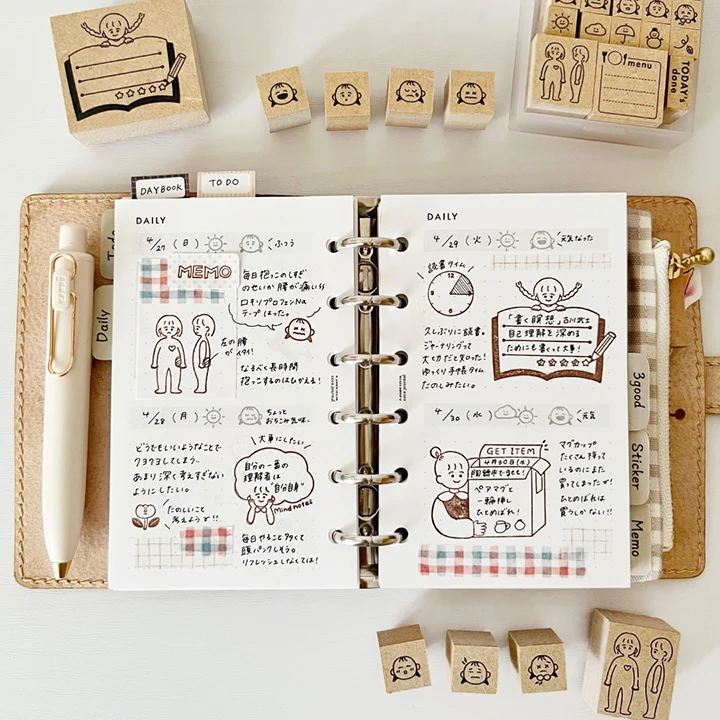 menu
TODAY's
done
DAYBOOK
TO DO
Todo
Daily
DAILY
4/27 (日)
ふつう
MEMO
毎日抱っこのしすぎ
のせいか腰が痛い
ロキソプロフェンNa
テープはった。
左の腰
がイタイ!
なるべく長時間
抱っこするのはひかえる!
4/28 (月)
ちょっと
おちこみ気味、
どうでもいいようなことで
クヨクヨしてしまう…
あまり深く考えすぎない
ようにしたい。
たのしいこと
考えよう!!
大事にしたい
自分の一番の
理解者は
"自分自身"
Mind notes
毎日やること多くて
頭パンクしそう。
リフレッシュしなくては!
DAILY
4/29 (火)
元気なった
読書タイム
12
3
6
9
久しぶりに読書。
ジャーナリングって
大切だと知った!
ゆっくり手帳タイム
たのしみたい。
「書く瞑想」古川武士
自己理解を深める
ためにも書くって大事!
4/30 (水)
元気
GET ITEM
4月30日(水)
陶器市で3ヒも!
ペアマグと
一輪挿し
ひとめぼれ!
マグカップ
たくさん持って
いるのにまた
買ってしまったぞ!
ひとめぼれは
買うしかない!!
3good
Sticker
Memo